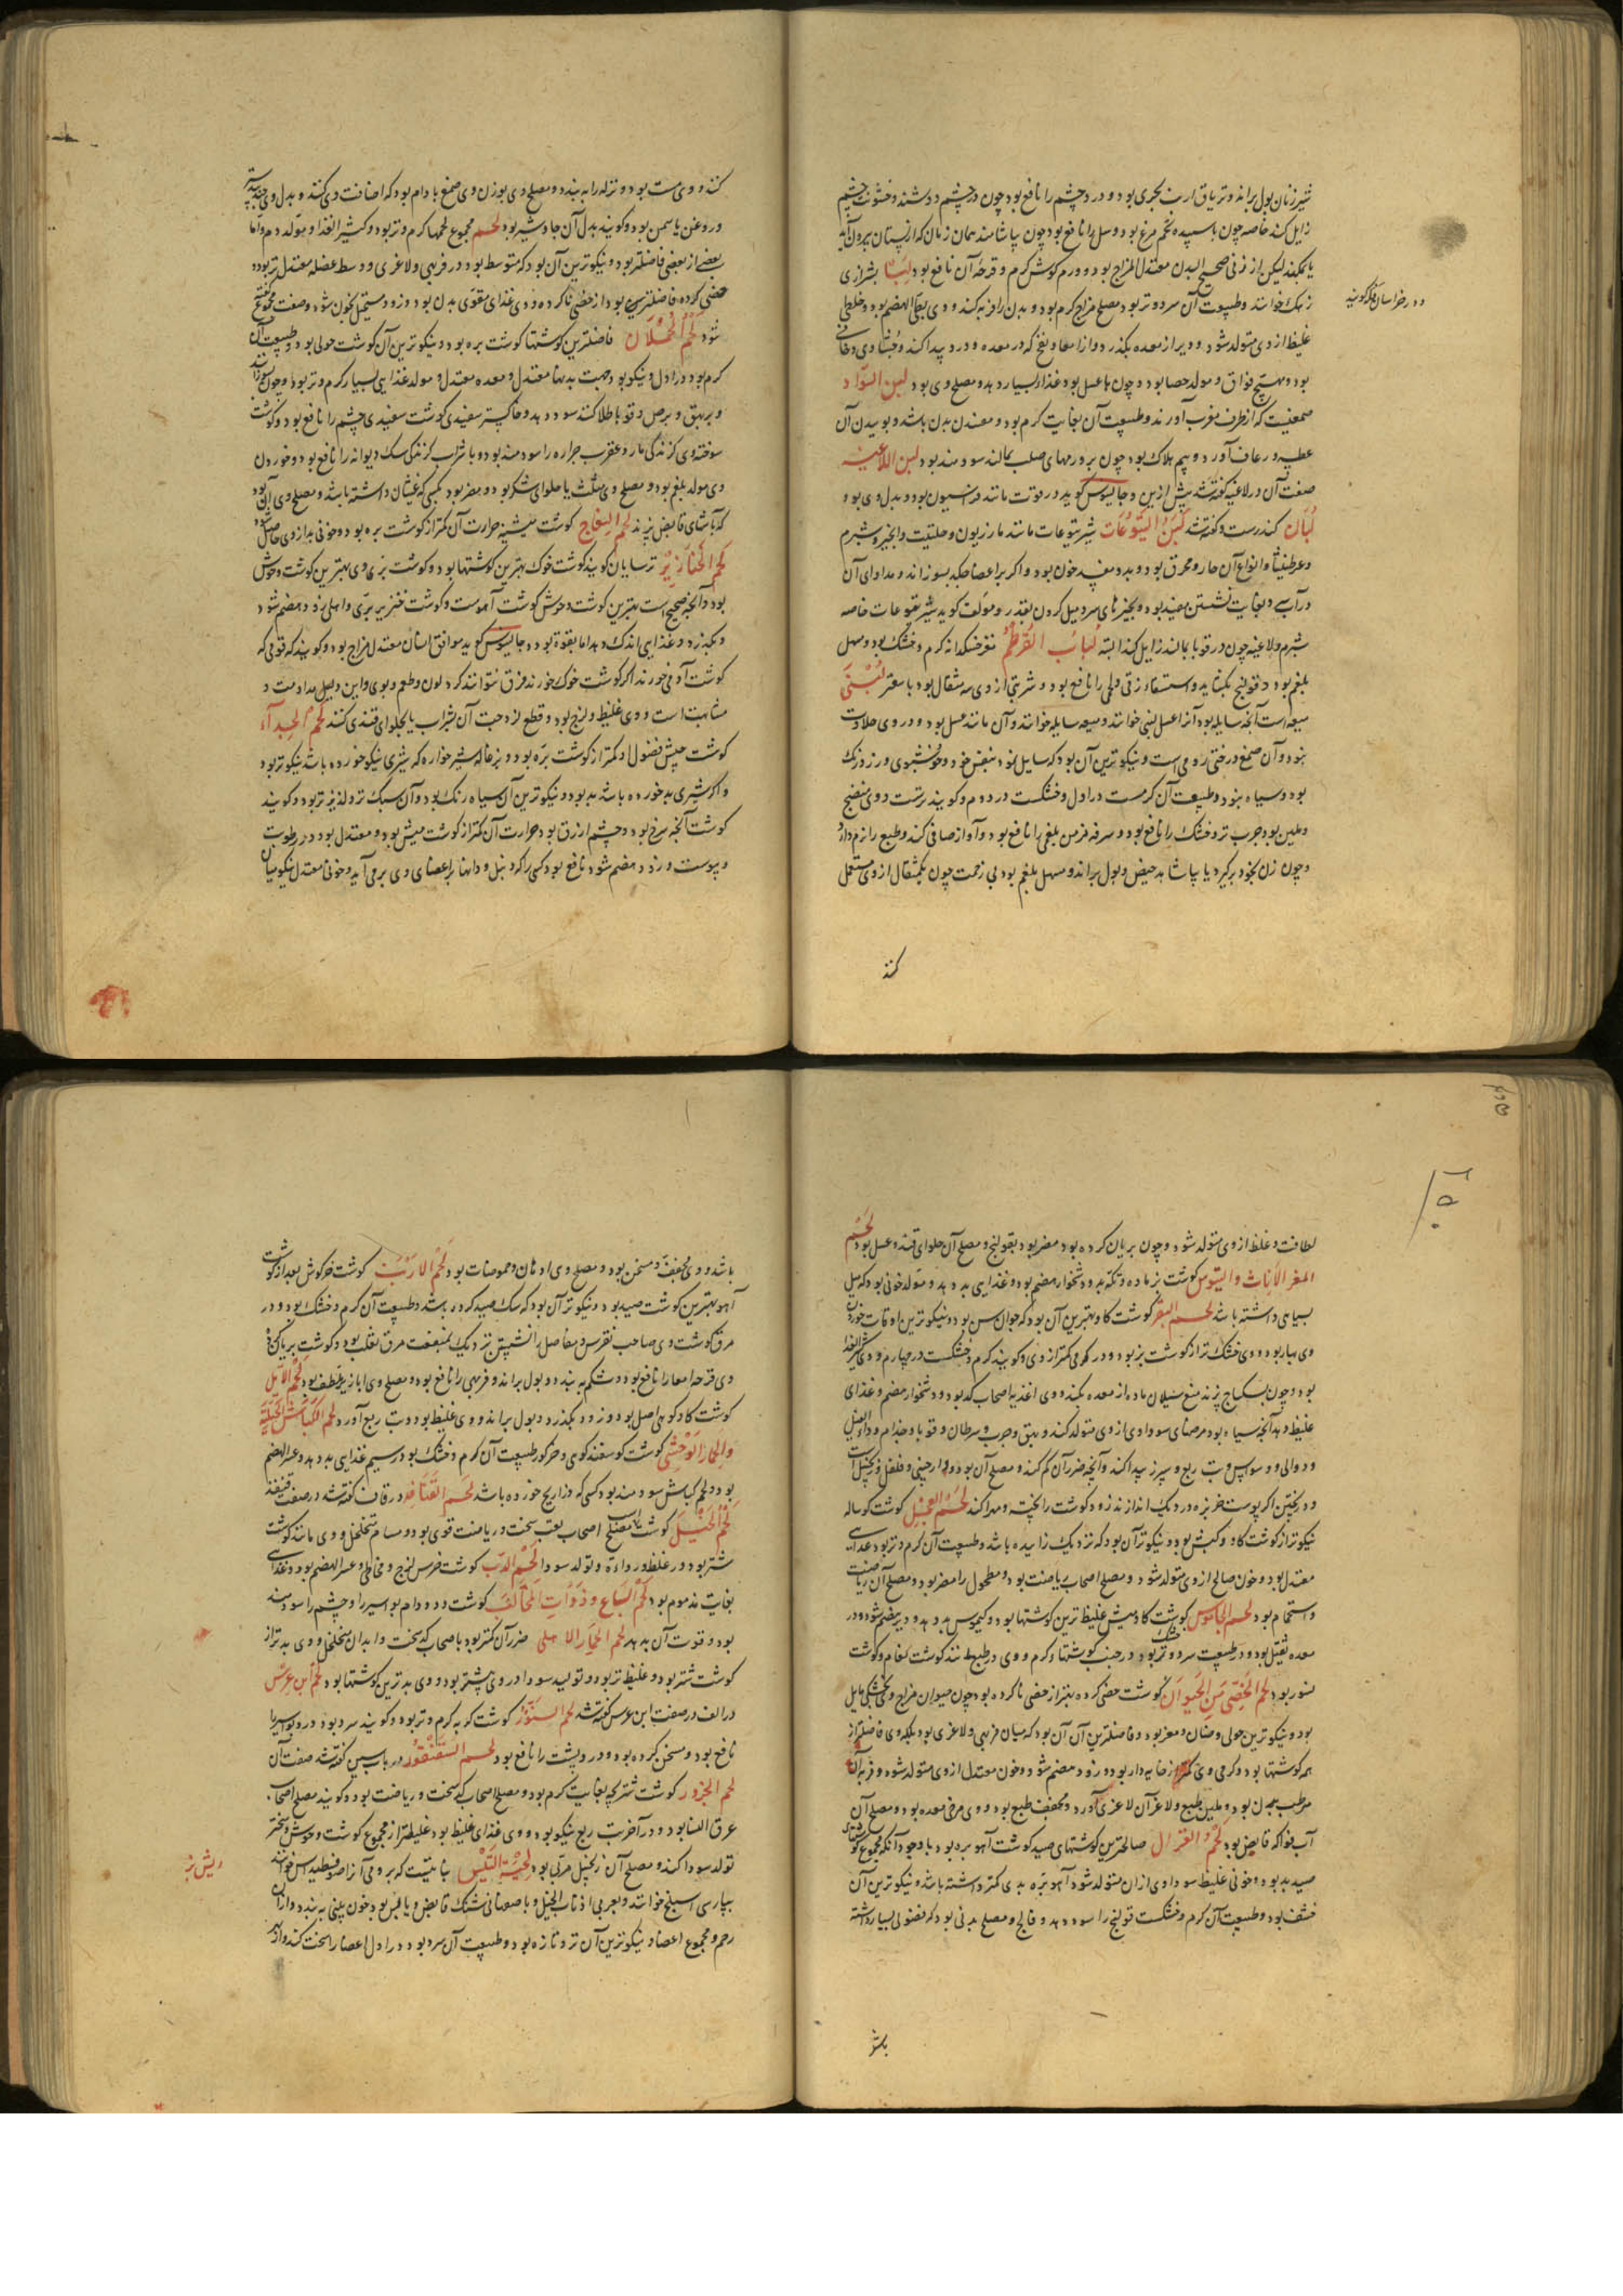 شیر زنان بول براند و تریاق ارنب بحری بود و درد چشم را نافع بود چون در چشم دوشند و خشونت چشم
زایل کند خاصه چون با سپیده تخم مرغ بود و سل را نافع بود چون بیاشامند همان زمان که از پستان بیرون آید
یا بمکند لیکن از زنی صحیح البدن معتدل المزاج بود و ورم گوش گرم و قرحه آن نافع بود لبا بشیرازی
و در خراسان فله گویند
زهک خوانند و طبیعت آن سرد و تر بود مصلح مزاج گرم بود و بدن را فربه کند و وی بطی الهضم بود و خلطی
غلیظ از وی متولد شود و دیر از معده بگذرد و از امعا و نفخ که در معده و درد پیدا کند و جشاء وی دخانی
بود و مهیج فواق و مولد حصا بود و چون با عسل بود غذا بسیار دهد و مصلح وی بود لبن السودا
صمغیست که از طرف مغرب آورند و طبیعت آن بغایت گرم بود و معدن بدن باشد و بوییدن آن
عطسه و رعاف آورد و بیم هلاک بود چون بر ورمهای صلب بمالند سودمند بود لبن اللاعیه
صفت آن در لاعیه گفته شد پیش ازین و جالینوس گوید در قوت مانند فرسیون بود و بدل وی بود
لبان کندرست و گفته شد لبن الیتوعات شیر یتوعات مانند مازریون و حلتیت و انجیر و شبرم
و عرطنیثا و انواع آن حار و محرق بود و بد و مفسد خون بود و اگر بر اعضا چکد بسوزاند و مداوای آن
در آب سرد بغایت نشستن مفید بود و بچیزهای سرد میل کردن بقدر و مولف گوید شیر یتوعات خاصه
شبرم و لاعیه چون در قوبا بمالند زایل کند البته لباب القرطم مغز خسکدانه گرم و خشک بود و مسهل
بلغم بود و قولنج بگشاید و استسقاء زقی و لحمی را نافع بود و شربتی از وی سه مثقال بود با سعتر لبنی
میعه است آنچه سایله بود آنرا عسل لبنی خوانند و میعه سایله خوانند و آن مانند عسل بود و در وی حلاوت
نبود و آن صمغ درختی رومی است و نیکوترین آن بود که سایل بود بنفس خود و خوشبوی و زرد رنگ
بود و سیاه نبود و طبیعت آن گرمست در اول و خشکست در دوم و گویند ترست و وی منضج
و ملین بود و جرب تر و خشک را نافع بود و سرفه مزمن بلغمی را نافع بود و آواز صافی کند و طبع را نرم دارد
و چون زن بخود برگیرد یا بیاشامد حیض و بول براند و مسهل بلغم بود بی زحمت چون یکمثقال از وی مستعمل
کنند
کنند و وی مست بود و نزله را ببندد و مصلح وی بوزن وی صمغ بادام بود که اضافت وی کنند و بدل وی جندبیدستر
و روغن یاسمن بود و گویند بدل آن جاوشیر بود لحم مجموع لحمها گرم و تر بود و کثیر الغذا و مولد دم و اما
بعضی از بعضی فاضلتر بود و نیکوترین آن بود که متوسط بود در فربهی و لاغری و وسط عضله معتدل تر بود و
خصی کرده فاضلترین بود از خصی ناکرده و وی غذای مقوی بدن بود و زود مستحیل بخون شود و صفت مجموع گفته
شود لحم الحملان فاضلترین گوشتها گوشت بره بود و نیکوترین آن گوشت حولی بود و طبیعت آن
گرم بود در اول و نیکو بود جهت بدنها معتدل و معده معتدل و مولد غذایی بسیار گرم و تر بود و چون بسوزانند
و بر بهق و برص و قوبا طلا کنند سود دهد و خاکستر سفیدی گوشت سفیدی چشم را نافع بود و گوشت
سوخته وی گزندگی مار و عقرب جراره را سودمند بود و با شراب گزندگی سک دیوانه را نافع بود و خوردن
وی مولد بلغم بود و مصلح وی مثلث یا حلوای شکر بود و مضر بود بکسی که غثیان داشته باشد و مصلح وی آن بود
که با آشهای قابض پزند لحم النعاج گوشت میشینه حرارت آن کمتر از گوشت بره بود و خونی بد از وی حاصل شود
لحم الخنازیر ترسایان گویند گوشت خوک بهترین گوشتها بود و گوشت بری وی بهترین گوشت وحوش
بود و آنچه صحیح است بهترین گوشت وحوش گوشت آهوست و گوشت خنزیر بری و اهلی زود هضم شود
و بگذرد و غذایی اندک دهد اما بقوة بود و جالینوس گوید موافق انسان معتدل مزاج بود و گویند که قومی که
گوشت آدمی خورند اگر گوشت خوک خورند فرق نتوانند کرد لون و طعم و بوی و این دلیل مداومت و
مشابهت است و وی غلیظ و لزج بود و قطع لزوجت آن بشراب یا بحلوای قندی کنند لحم الجداء
گوشت میش فضول او کمتر از گوشت بره بود و بزغاله شیرخواره که شیری نیکو خورده باشد نیکوتر بود
و اگر شیری بد خورده باشد بد بود و نیکوترین آن سیاه رنک بود و آن سبک تر و لذیذتر بود و گویند
گوشت آنچه سرخ بود و چشم ازرق بود حرارت آن کمتر از گوشت میش بود و معتدل بود در رطوبت
و یبوست و زود هضم شود نافع بود کسی را که دنبل و دانها بر اعضای وی برمی آید و خونا معتدل نیکو میان
لطافت و غلظ از وی متولد شود و چون بریان کرده بود مضر بود بقولنج و مصلح آن حلوای قند و عسل بود لحم
المعز الاناث والتیوس گوشت بز ماده و تکه بد و دشخوار هضم بود و غذایی بد دهد و مولد خونی بود که میل
بسیاهی داشته باشد لحم البقر گوشت گاو بهترین آن بود که جوان سن بود و نیکوترین اوقات خوردن
وی بهار بود و وی خشک تر از گوشت بز بود و در گرمی کمتر از وی و گویند گرم و خشکست در چهارم و وی کثیر الغذا
بود و چون بسکباج پزند منع سیلان ماده از معده بکند و وی اغذیه اصحاب کد بود و دشخوار هضم و غذای
غلیظ دهد آنچه سیاه بود مرضهای سوداوی از وی متولد کند و بهق و جرب و سرطان و قوبا و جذام و داء الفیل
و دوالی و وسواس و تب ربع و سپرز پیدا کند و آنچه ضرر آن کم کند و مصلح آن بود دارچینی و فلفل و زنجبیل است
و در پختن اگر پوست خربزه در دیک اندازند زود گوشت را پخته و مهرا کند لحم العجل گوشت گوساله
نیکوتر از گوشت گاو و کبش بود و نیکوتر آن بود که نزدیک زاییده باشد و طبیعت آن گرم و تر بود غذای
معتدل بود و خون صالح از وی متولد شود و مصلح اصحاب ریاضت بود و مطحول را مضر بود و مصلح آن ریاضت
و استحمام بود لحم الجاموس گوشت گاومیش غلیظ ترین گوشتها بود و کیموس بد دهد و دیر هضم شود و در
معده ثقیل بود و در طبیعت سرد و تر بود در جنب گوشتهاء گرم و وی در طبع مانند گوشت نعام و گوشت
نسور بود لحم الخصی من الحیوان گوشت خصی کرده بهتر از خصی ناکرده بود چون حیوان مزاج وی بخشکی مایل
بود و نیکوترین حولی و ضان و معز بود و فاضلترین آن آن بود که میان فربهی و لاغری بود بلکه وی فاضلتر از
همه گوشتها بود و گرمی وی کمتر از خایه دار بود و زود هضم شود و خون معتدل از وی متولد شود و فربه آن
مرطب بدن بود و ملین طبع و لاغر آن لاغری آورد و مجفف طبع بود و وی مرخی معده بود و مصلح آن
آب فواکه قابض بود لحم الغزال صالحترین گوشتهای صید گوشت آهوبره بود با وجود آنکه مجموع گوشتهای
صید بد بود و خونی غلیظ سوداوی از آن متولد شود آهو بره بدی کمتر داشته باشد و نیکوترین آن
خشف بود و طبیعت آن گرم و خشکست قولنج را سود دهد و فالج و مصلح بدنی بود که فضولی بسیار داشته
باشد
باشد و وی مجفف و مسخن بود و مصلح وی ادهان و حموضات بود لحم الارنب گوشت خرگوش بعد از گوشت
آهو بهترین گوشت صید بود و نیکوتر آن بود که سک صید کرده باشد و طبیعت آن گرم و خشک بود و در
مرق گوشت وی صاحب نقرس و مفاصل را نشستن نزدیک بمنفعت مرق ثعلب بود و گوشت بریان کرده
وی قرحه امعا را نافع بود و شکم ببندد و بول براند و فربهی را نافع بود و مصلح وی ابازیر ملطف بود لحم الایل
گوشت گاو کوهی اصل بود و زود بگذرد و بول براند و وی غلیظ بود و تب ربع آورد لحم الکباش الجبلیة
والحمار الوحشی گوشت گوسفند کوهی و خر گور طبیعت آن گرم و خشک بود در سیم غذایی بد دهد و عسر الهضم
بود و لحم کباش سودمند بود کسی که ذراریح خورده باشد لحم القنافذ در قاف گفته شد در صفت قنفذ
لحم الخیل گوشت اسب مصلح اصحاب تعب سخت و ریاضت قوی بود و مسام متخلخل و وی مانند گوشت
شتر بود در غلظ و رداءة و تولد سودا لحم الدب گوشت خرس لزج و مخاطی و عسر الهضم بود و غذای
بغایت مذموم بود لحم السباع و ذوات المخالف گوشت دد و دام بواسیر را و چشم را سودمند
بود و قوت آن بدهد لحم الحمار الاهلی ضرر آن کمتر بود باصحاب کد سخت و ابدان متخلخل و وی بدتر از
گوشت شتر بود و غلیظ تر بود و تولید سودا در وی بیشتر بود و وی بدترین گوشتها بود لحم ابن عرس
در الف در صفت ابن عرس گفته شد لحم السنور گوشت گربه گرم و تر بود و گویند سرد بود درد بواسیر را
نافع بود و مسخن گرده بود و درد پشت را نافع بود لحم السقنقور در باب سین گفته شد صفت آن
لحم الجزور گوشت شتربچه بغایت گرم بود و مصلح اصحاب کد سخت و ریاضت بود و گویند مصلح اصحاب
عرق النسا بود و در آخر تب ربع نیکو بود و وی غذای غلیظ بود غلیظتر از مجموع گوشت وحوش و بختر
تولد سودا کند و مصلح آن زنجبیل مربی بود لحیة التیس نباتیست که برومی آنرا صوفسطیداس خوانند
ریش بز
بپارسی اسبلنج خوانند و بعربی اذناب الخیل و باصفهانی شنک قابض و یابس بود خون بینی ببندد و از آن
رحم و مجموع اعضا و نیکوترین آن تر و تازه بود و طبیعت آن سرد بود در اول اعضا را سخت کند و از هر